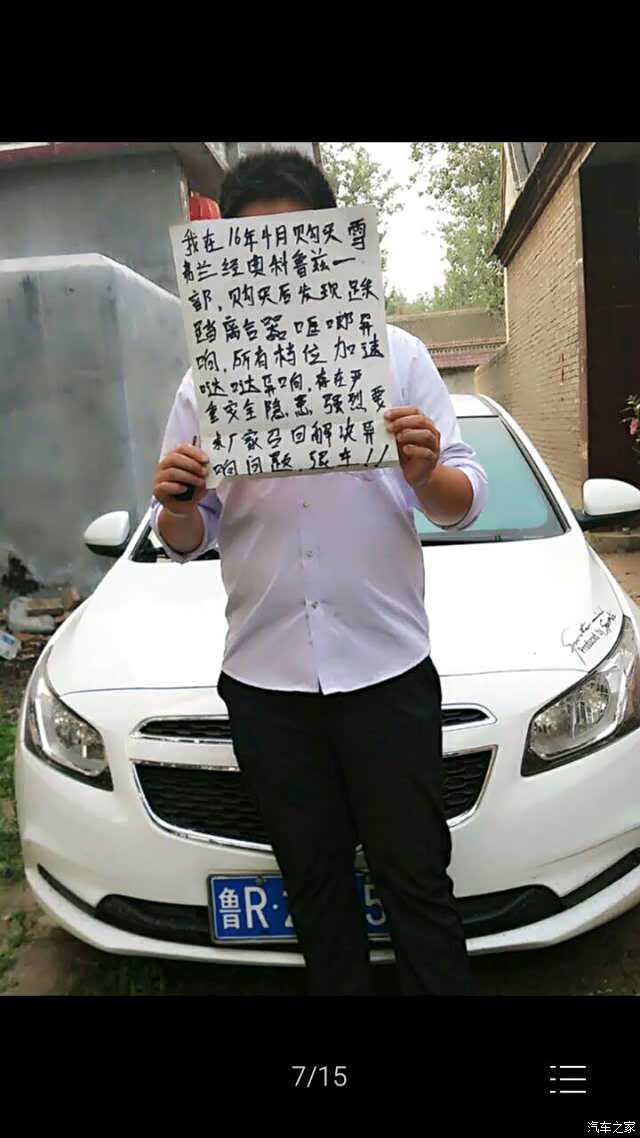 我在16年4月购买雪
弗兰经典科鲁兹一
部，购买后发现踩
挡离合器哐啷异
响，所有档位加速
哒哒异响，存在严
重安全隐患，强烈要
求厂家召回解决异
响问题，退车！！
Produced by
鲁R·2 5
7/15
汽车之家